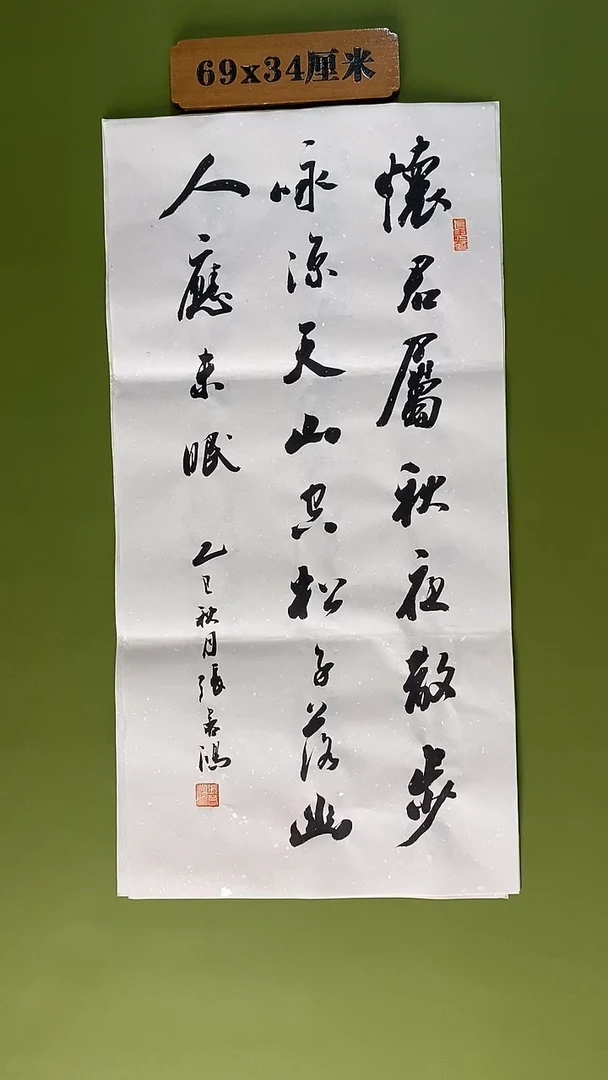 69x34厘米
懷君屬秋夜散步
咏涼天山空松子落幽
人應未眠
乙巳秋月張